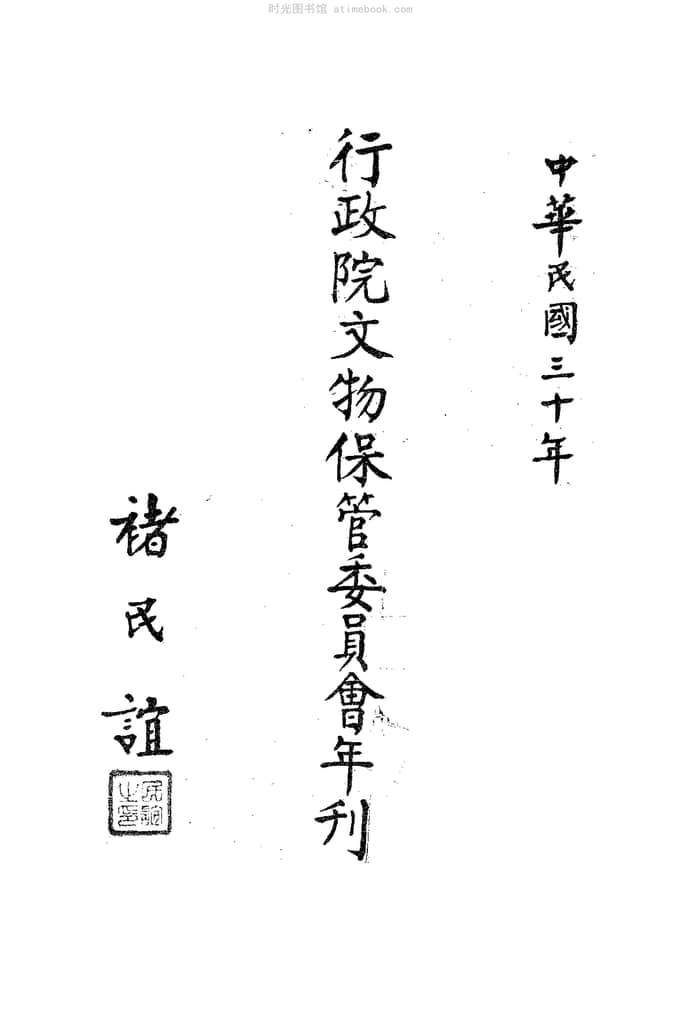 时光图书馆 atimebook.com
中華民國三十年
行政院文物保管委員會年刊
褚民誼
民誼之印